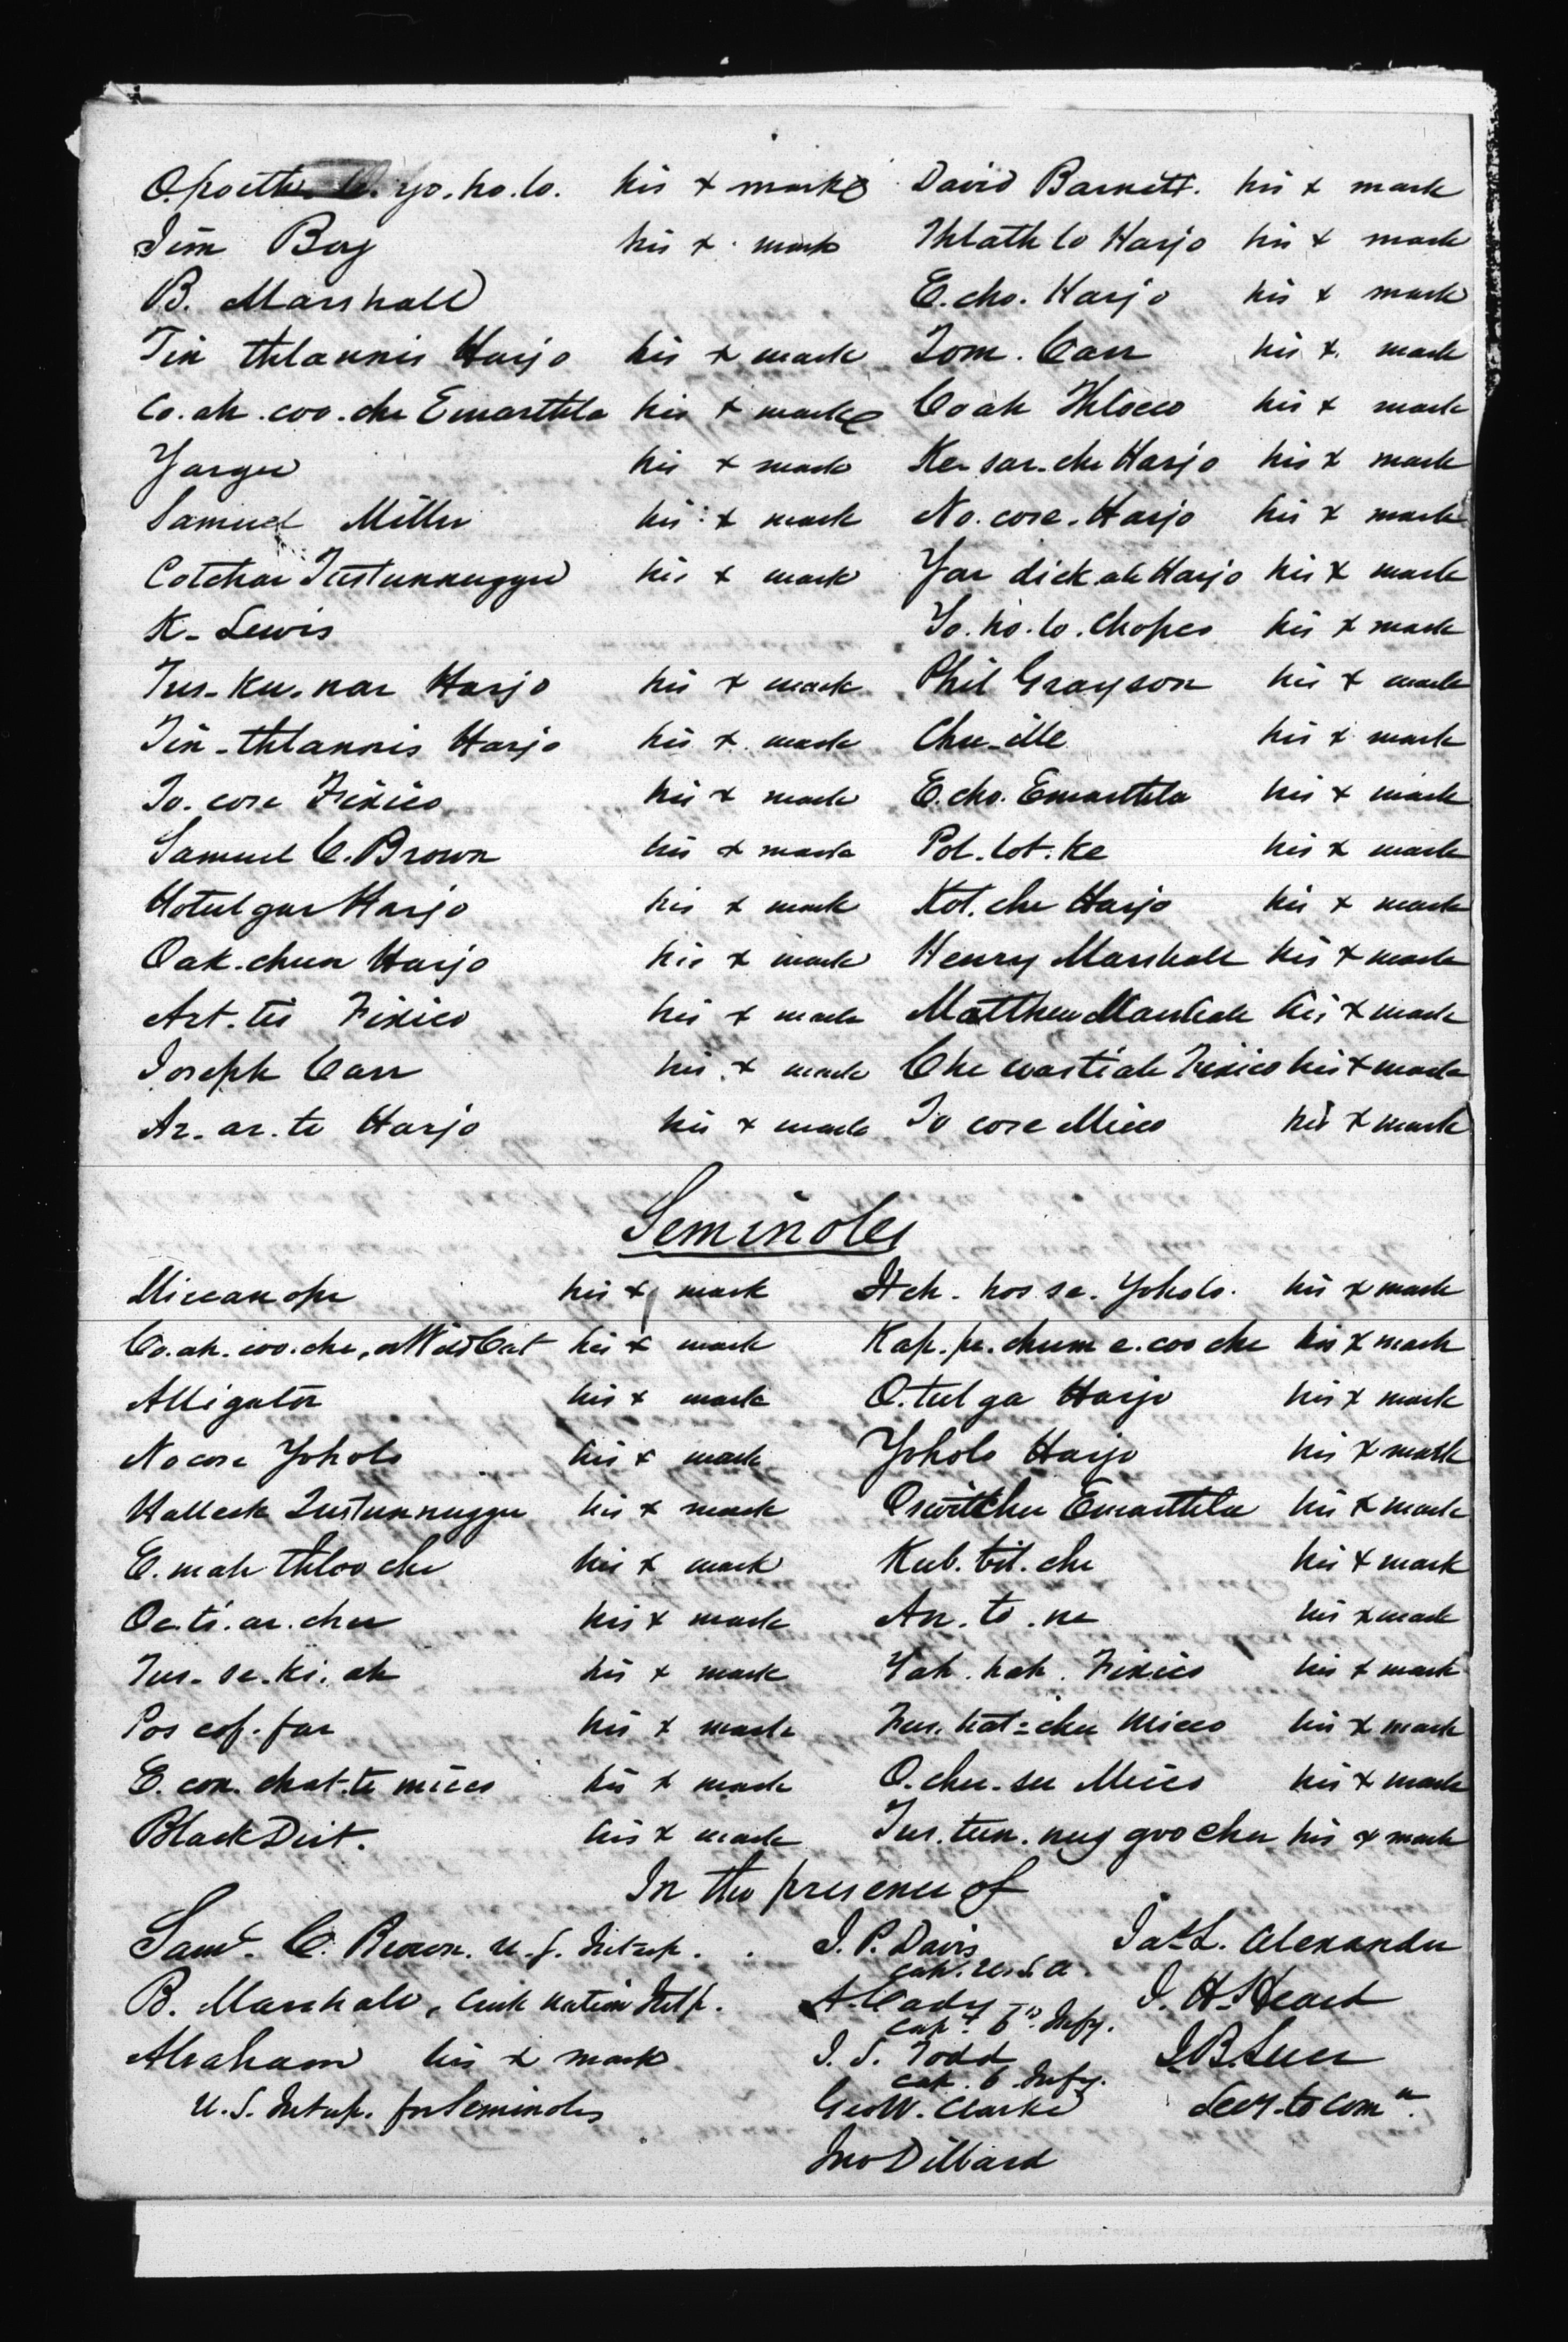 Opoeth. le. yo. ho. lo. his x mark David Barnett. his x mark
Jim Boy his x mark Thlath lo Harjo his x mark
B. Marshall E. cho. Harjo his x mark
Tin thlannis Harjo his x mark Tom. Carr his x mark
Co. ah. coo. che Emarthla his x mark Coah Thlocco his x mark
Yargee his x mark Ke sar. che Harjo his x mark
Samuel Miller his x mark No. cose. Harjo his x mark
Cotchar Tustunnuggee his x mark Yar dick ah Harjo his x mark
K. Lewis Yo. ho. lo. Chopco his x mark
Tus. ke. nar Harjo his x mark Phil Grayson his x mark
Tin-thlannis Harjo his x mark Chu-ille his x mark
To. cose Fixico his x mark E. cho. Emarthla his x mark
Samuel C. Brown his x mark Pol. lot. ke his x mark
Hotulgar Harjo his x mark Kot. che Harjo his x mark
Oak. chun Harjo his x mark Henry Marshall his x mark
Art. tis Fixico his x mark Matthew Marshall his x mark
Joseph Carr his x mark Che wastiah Fixico his x mark
Ar. ar. te Harjo his x mark To cose Micco his x mark
Seminoles
Miccanope his x mark Itch. hos se. Yoholo. his x mark
Co. ah. coo. che, or Wild Cat his x mark Kap. pe. chum e. coo che his x mark
Alligator his x mark O. tul ga Harjo his x mark
Nocose Yoholo his x mark Yoholo Harjo his x mark
Halleck Tustunnuggee his x mark Oswitchee Emarthla his x mark
E. mah thloo che his x mark Kub. bit. che his x mark
Oc. ti. ar. chee his x mark An. to. ne his x mark
Tus. se. ki. ah his x mark Yah. hah. Fixico his x mark
Pos cof. far his x mark Fus. hat-chee Micco his x mark
E. con. chat. te micco his x mark O. chee. see Micco his x mark
Black Dirt. his x mark Tus. tun. nug goo chee his x mark
In the presence of
Saml. C. Brown. U. S. Interp. J. P. Davis Jas L. Alexander
Cap. U. S. A.
B. Marshall, Creek nation Intp. A. Cady J. H. Heard
Capt. 6th. Infy.
Abraham his x mark J. S. Todd J. B. Luce
Cap. 6 Infy.
U. S. Interp. for Seminoles Geo W. Clarke Secy. to Comn.
Jno Dillard